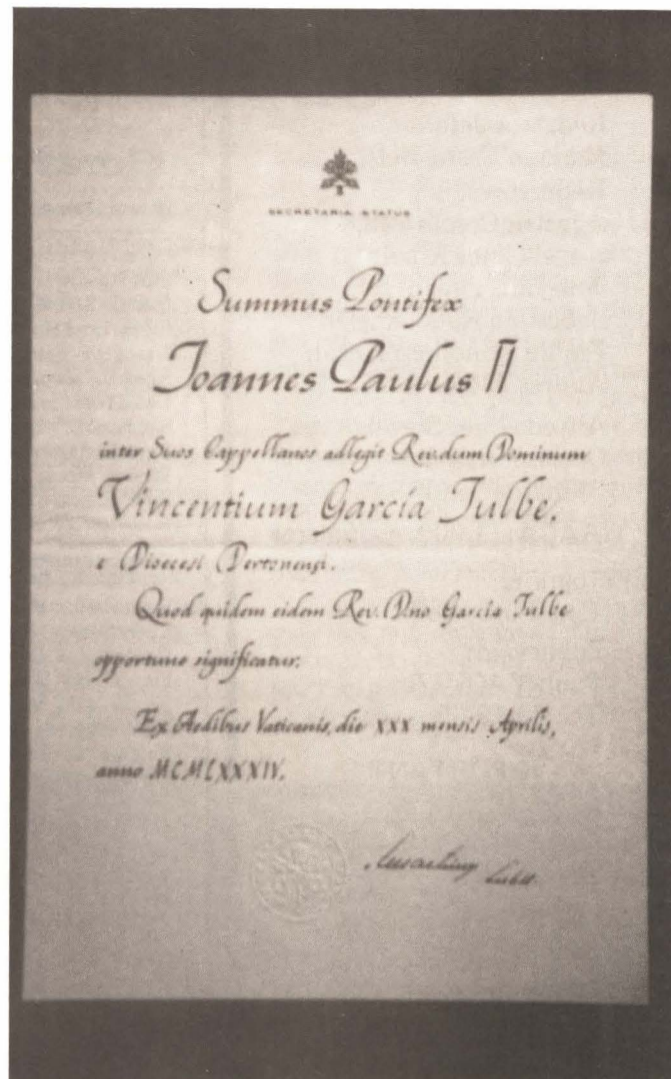 SECRETARIA STATUS
Summus Pontifex
Joannes Paulus II
inter Suos Cappellanos adlegit Rev.dum Dominum
Vincentium García Julbe,
e Dioecesi Dertonensi.
Quod quidem eidem Rev. D.no García Julbe
opportune significatur.
Ex Aedibus Vaticanis, die XXX mensis Aprilis,
anno MCMLXXXIV.